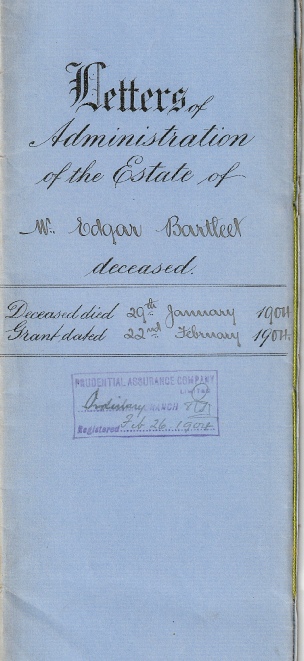 Letters of
Administration
of the Estate of
Mr. Edgar Bartleet
deceased.
Deceased died 29th January 1904
Grant dated 22nd February 1904.
PRUDENTIAL ASSURANCE COMPANY
LIMITED
Ordinary BRANCH
Registered Feb 26. 1904